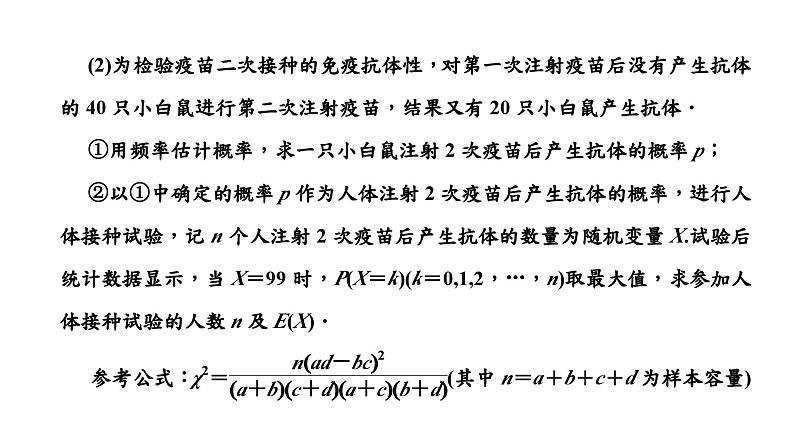 (2)为检验疫苗二次接种的免疫抗体性，对第一次注射疫苗后没有产生抗体
的 40 只小白鼠进行第二次注射疫苗，结果又有 20 只小白鼠产生抗体．
①用频率估计概率，求一只小白鼠注射 2 次疫苗后产生抗体的概率 p；
②以①中确定的概率 p 作为人体注射 2 次疫苗后产生抗体的概率，进行人
体接种试验，记 n 个人注射 2 次疫苗后产生抗体的数量为随机变量 X.试验后
统计数据显示，当 X＝99 时，P(X＝k)(k＝0,1,2，…，n)取最大值，求参加人
体接种试验的人数 n 及 E(X)．
参考公式：χ²＝n(ad－bc)²/(a＋b)(c＋d)(a＋c)(b＋d)(其中 n＝a＋b＋c＋d 为样本容量)